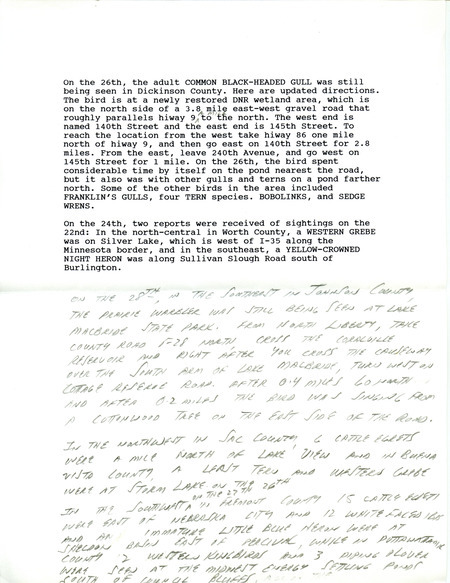 On the 26th, the adult COMMON BLACK-HEADED GULL was still
being seen in Dickinson County. Here are updated directions.
The bird is at a newly restored DNR wetland area, which is
on the north side of a 3.8 mile east-west gravel road that
roughly parallels hiway 9, to the north. The west end is
named 140th Street and the east end is 145th Street. To
reach the location from the west take hiway 86 one mile
north of hiway 9, and then go east on 140th Street for 2.8
miles. From the east, leave 240th Avenue, and go west on
145th Street for 1 mile. On the 26th, the bird spent
considerable time by itself on the pond nearest the road,
but it also was with other gulls and terns on a pond farther
north. Some of the other birds in the area included
FRANKLIN'S GULLS, four TERN species. BOBOLINKS, and SEDGE
WRENS.
On the 24th, two reports were received of sightings on the
22nd: In the north-central in Worth County, a WESTERN GREBE
was on Silver Lake, which is west of I-35 along the
Minnesota border, and in the southeast, a YELLOW-CROWNED
NIGHT HERON was along Sullivan Slough Road south of
Burlington.
ON THE 28TH, IN THE SOUTHEAST IN JOHNSON COUNTY,
THE PRAIRIE WARBLER WAS STILL BEING SEEN AT LAKE
MACBRIDE STATE PARK. FROM NORTH LIBERTY, TAKE
COUNTY ROAD F-28 NORTH, CROSS THE CORALVILLE
RESERVOIR AND RIGHT AFTER YOU CROSS THE CAUSEWAY
OVER THE SOUTH ARM OF LAKE MACBRIDE, TURN WEST ON
COTTAGE RESERVE ROAD. AFTER 0.4 MILES GO NORTH
AND AFTER 0.2 MILES THE BIRD WAS SINGING FROM
A COTTONWOOD TREE ON THE EAST SIDE OF THE ROAD.
IN THE NORTHWEST IN SAC COUNTY, 6 CATTLE EGRETS
WERE A MILE NORTH OF LAKE VIEW AND IN BUENA
VISTA COUNTY, A LEAST TERN AND WESTERN GREBE
WERE AT STORM LAKE ON THE 26TH
IN THE SOUTHWEST ON THE 27TH IN FREMONT COUNTY 15 CATTLE EGRETS
WERE EAST OF NEBRASKA CITY AND 12 WHITE FACED IBIS
AND AN IMMATURE LITTLE BLUE HERON WERE AT
SHELDON BASIN EAST OF PERCIVAL, WHILE IN POTTAWATTAMIE
COUNTY 2 WESTERN KINGBIRDS AND 3 PIPING PLOVER
WERE SEEN AT THE MIDWEST ENERGY SETTLING PONDS
SOUTH OF COUNCIL BLUFFS.